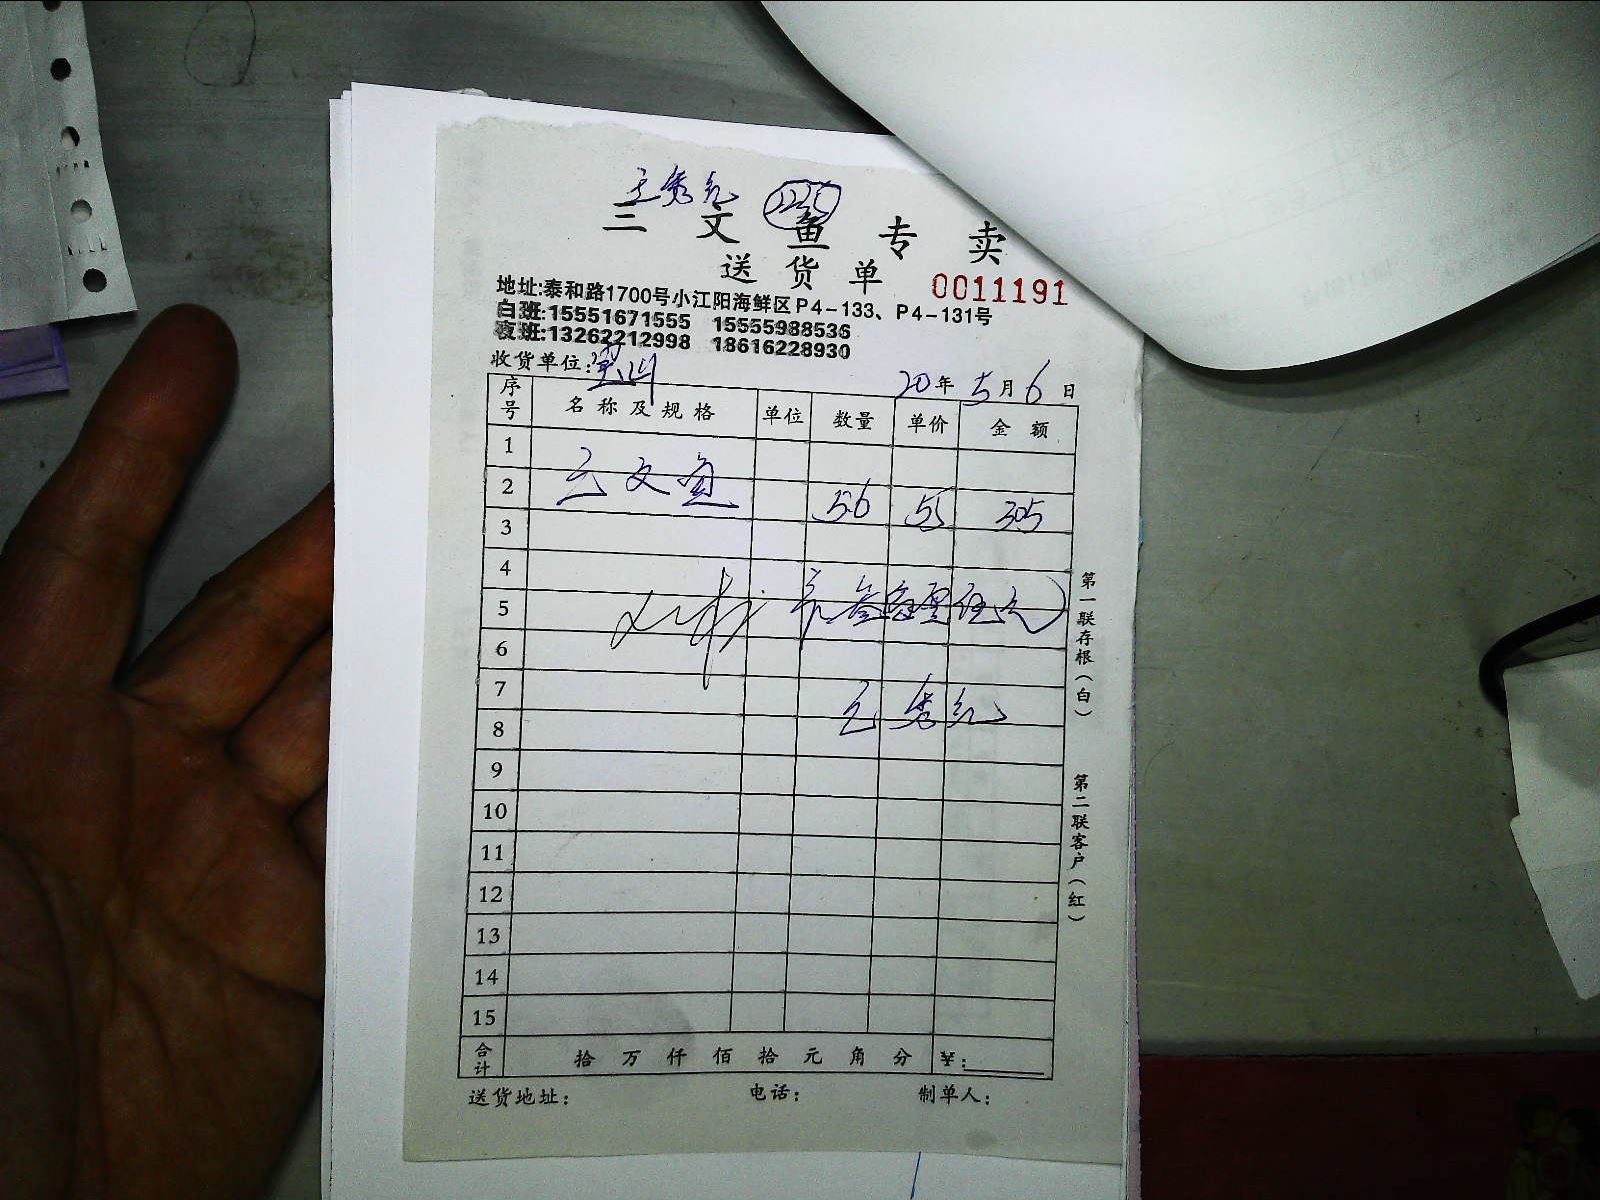 王秀红
三文鱼专卖
送货单 0011191
地址:泰和路1700号小江阳海鲜区P4-133、P4-131号
白班:15551671555 15555988536
夜班:13262212998 18616228930
收货单位:宝山 20年5月6日
序号 名称及规格 单位 数量 单价 金额
1
2 三文鱼 5.6 55 305
3
4
5 叁佰零伍元
6
7 王秀红
8
9
10
11
12
13
14
15
合计 拾万仟佰拾元角分 ¥:
送货地址: 电话: 制单人:
第一联存根(白)
第二联客户(红)